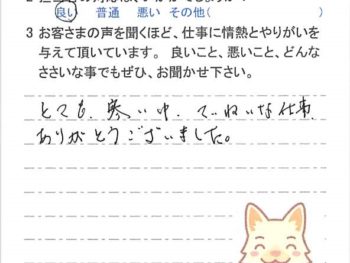 良い 普通 悪い その他( )
3 お客さまの声を聞くほど、仕事に情熱とやりがいを
与えて頂いています。 良いこと、悪いこと、どんな
ささいな事でもぜひ、お聞かせ下さい。
とても、寒い中、ていねいな仕事
ありがとうございました。